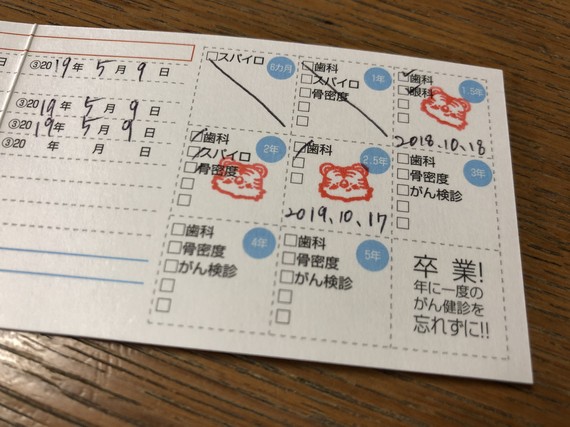 ③2019年 5月 9日
③2019年 5月 9日
③2019年 5月 9日
③20 年 月 日
スパイロ
6カ月
歯科
スパイロ
骨密度
1年
歯科
眼科
1.5年
2018.10.18
歯科
スパイロ
骨密度
2年
歯科
2.5年
2019.10.17
歯科
骨密度
がん検診
3年
歯科
骨密度
がん検診
4年
歯科
骨密度
がん検診
5年
卒業!
年に一度の
がん健診を
忘れずに!!